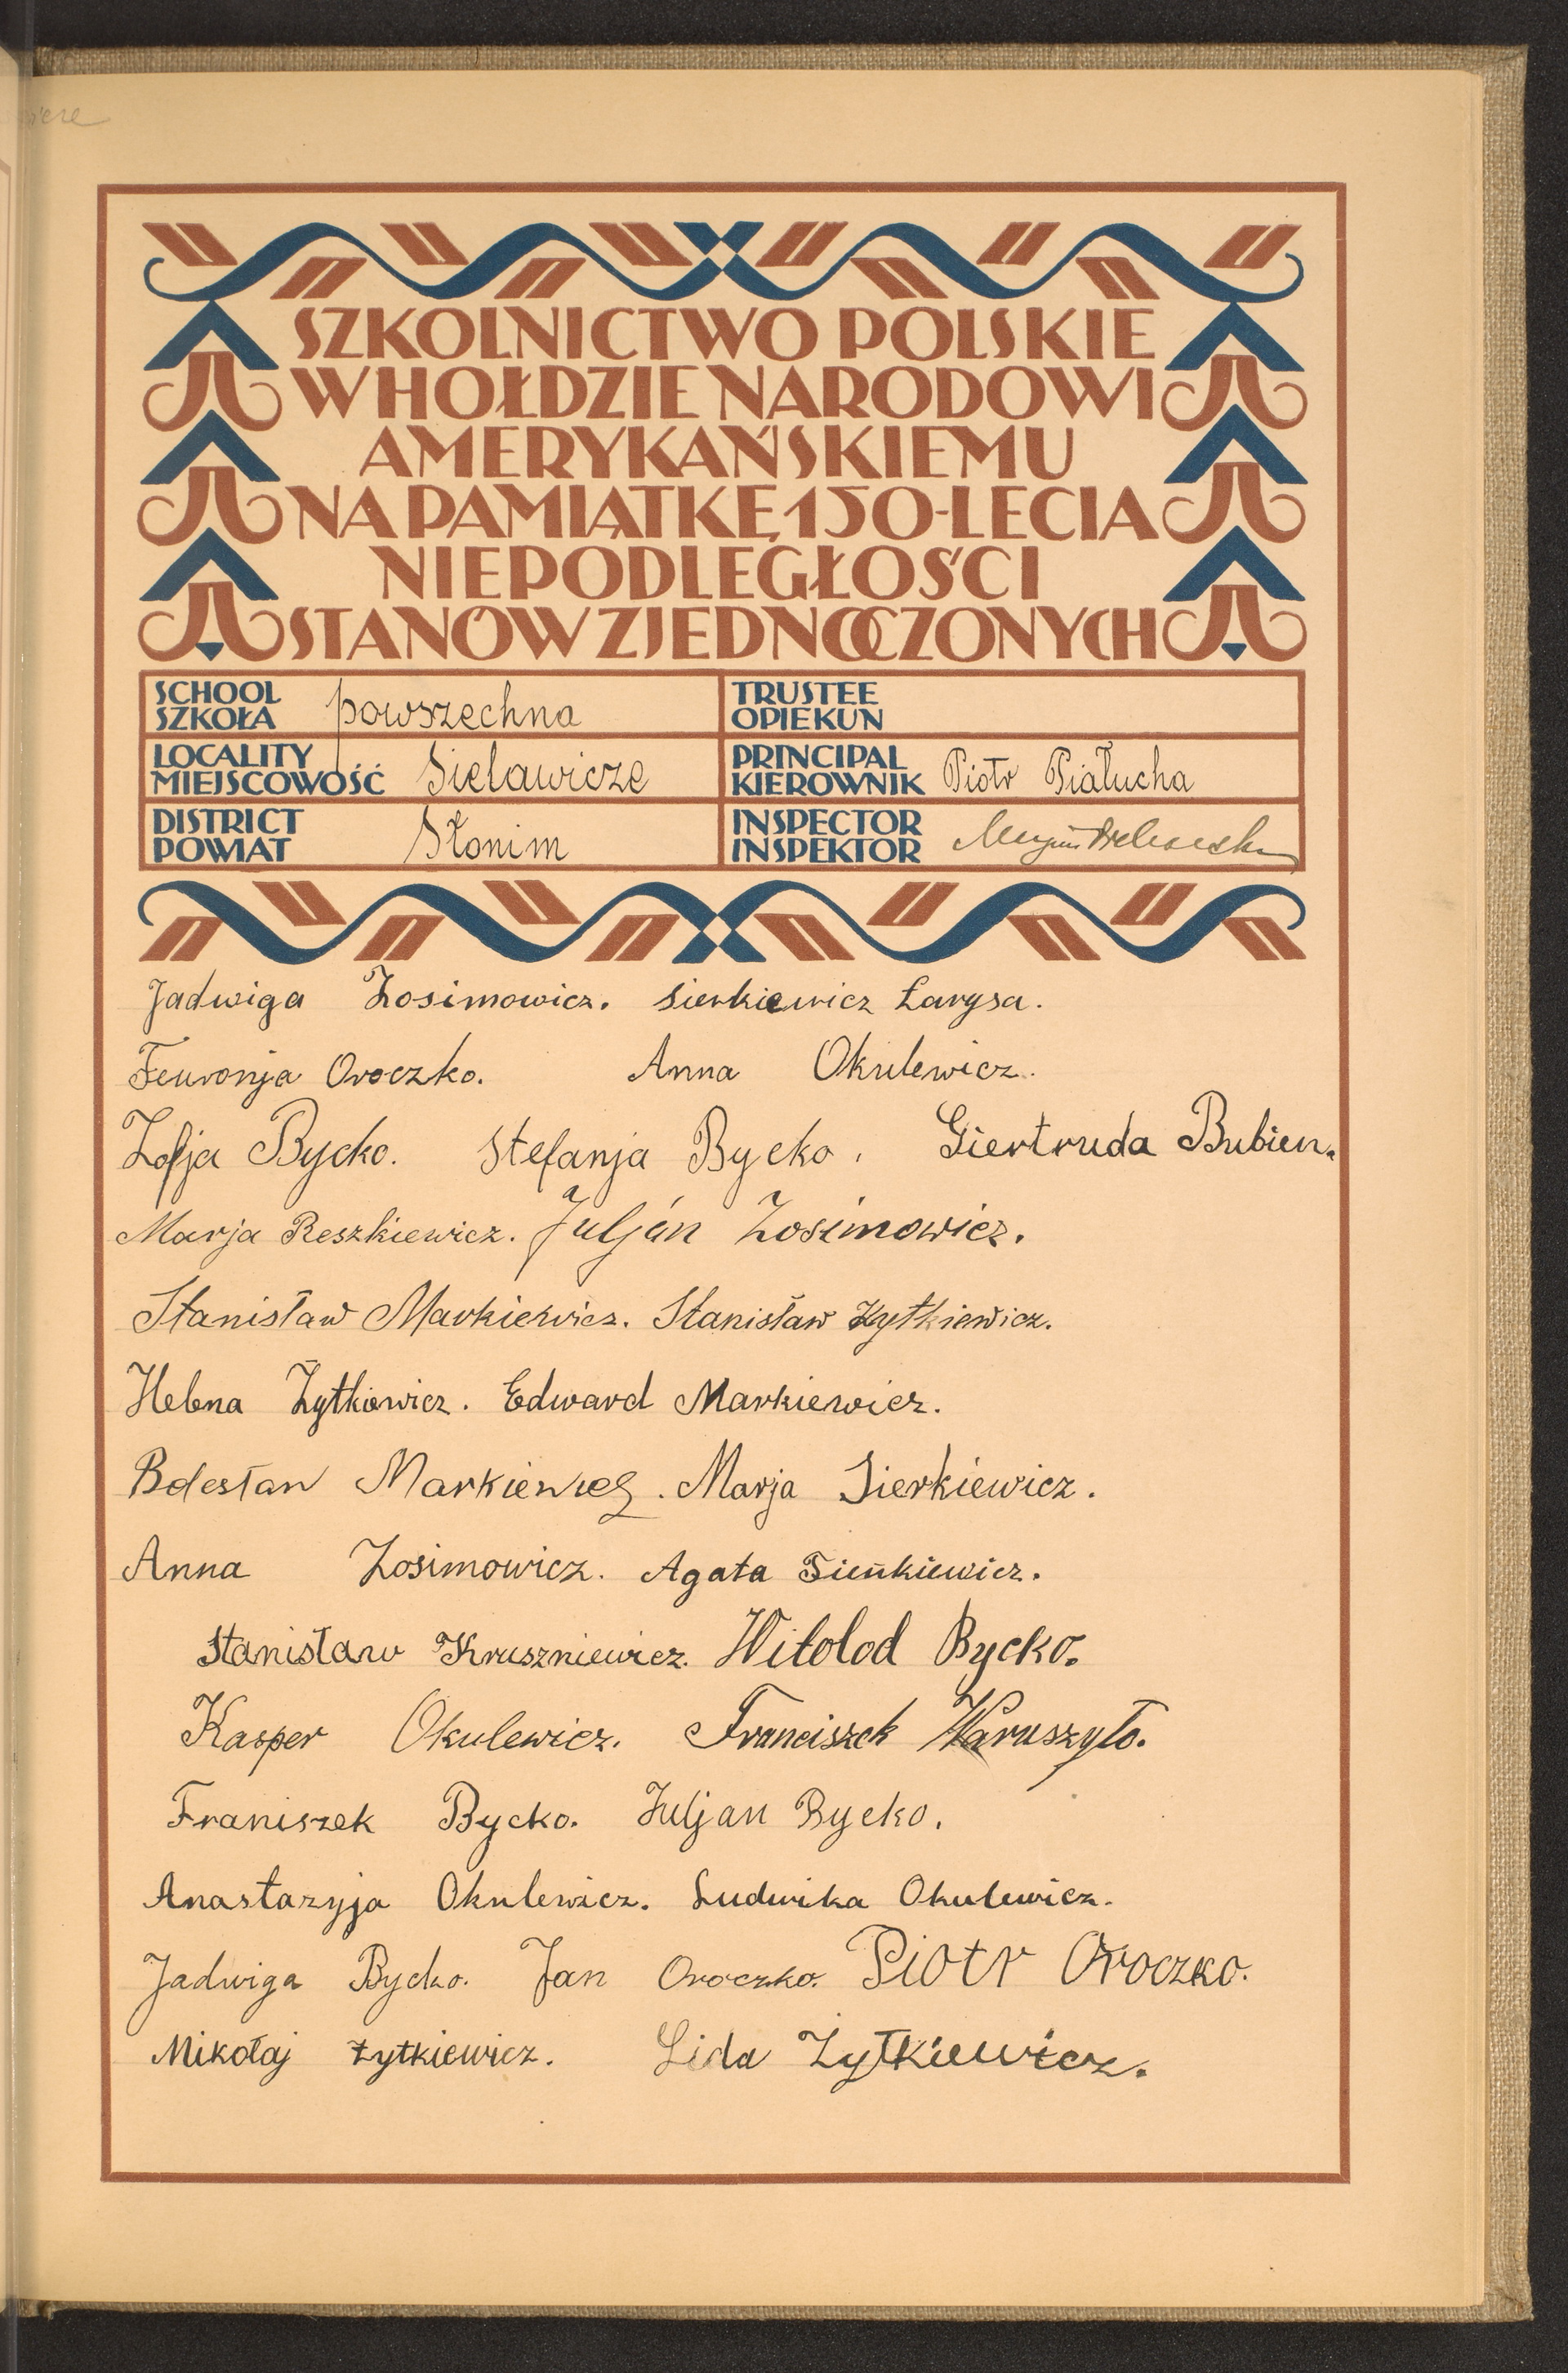 SZKOLNICTWO POLSKIE
W HOŁDZIE NARODOWI
AMERYKAŃSKIEMU
NA PAMIĄTKĘ 150-LECIA
NIEPODLEGŁOŚCI
STANÓW ZJEDNOCZONYCH
SCHOOL
SZKOŁA powszechna
TRUSTEE
OPIEKUN
LOCALITY
MIEJSCOWOŚĆ Sielawicze
PRINCIPAL
KIEROWNIK Piotr Piałucha
DISTRICT
POWIAT Słonim
INSPECTOR
INSPEKTOR
Jadwiga Zosimowicz. Sierkiewicz Larysa.
Feuronja Oroczko. Anna Okulewicz.
Zofja Bycko. Stefanja Bycko. Giertruda Bubien.
Marja Reszkiewicz. Juljan Zosimowicz.
Stanisław Markiewicz. Stanisław Żytkiewicz.
Helena Żytkiewicz. Edward Markiewicz.
Bolesław Markiewicz. Marja Sierkiewicz.
Anna Zosimowicz. Agata Sieńkiewicz.
Stanisław Kruszniewicz. Witolod Bycko.
Kasper Okulewicz. Franciszek Waruszyło.
Franiszek Bycko. Juljan Bycko.
Anastazyja Okulewicz. Ludwika Okulewicz.
Jadwiga Bycko. Jan Oroczko. Piotr Oroczko.
Mikołaj Żytkiewicz. Lida Żytkiewicz.